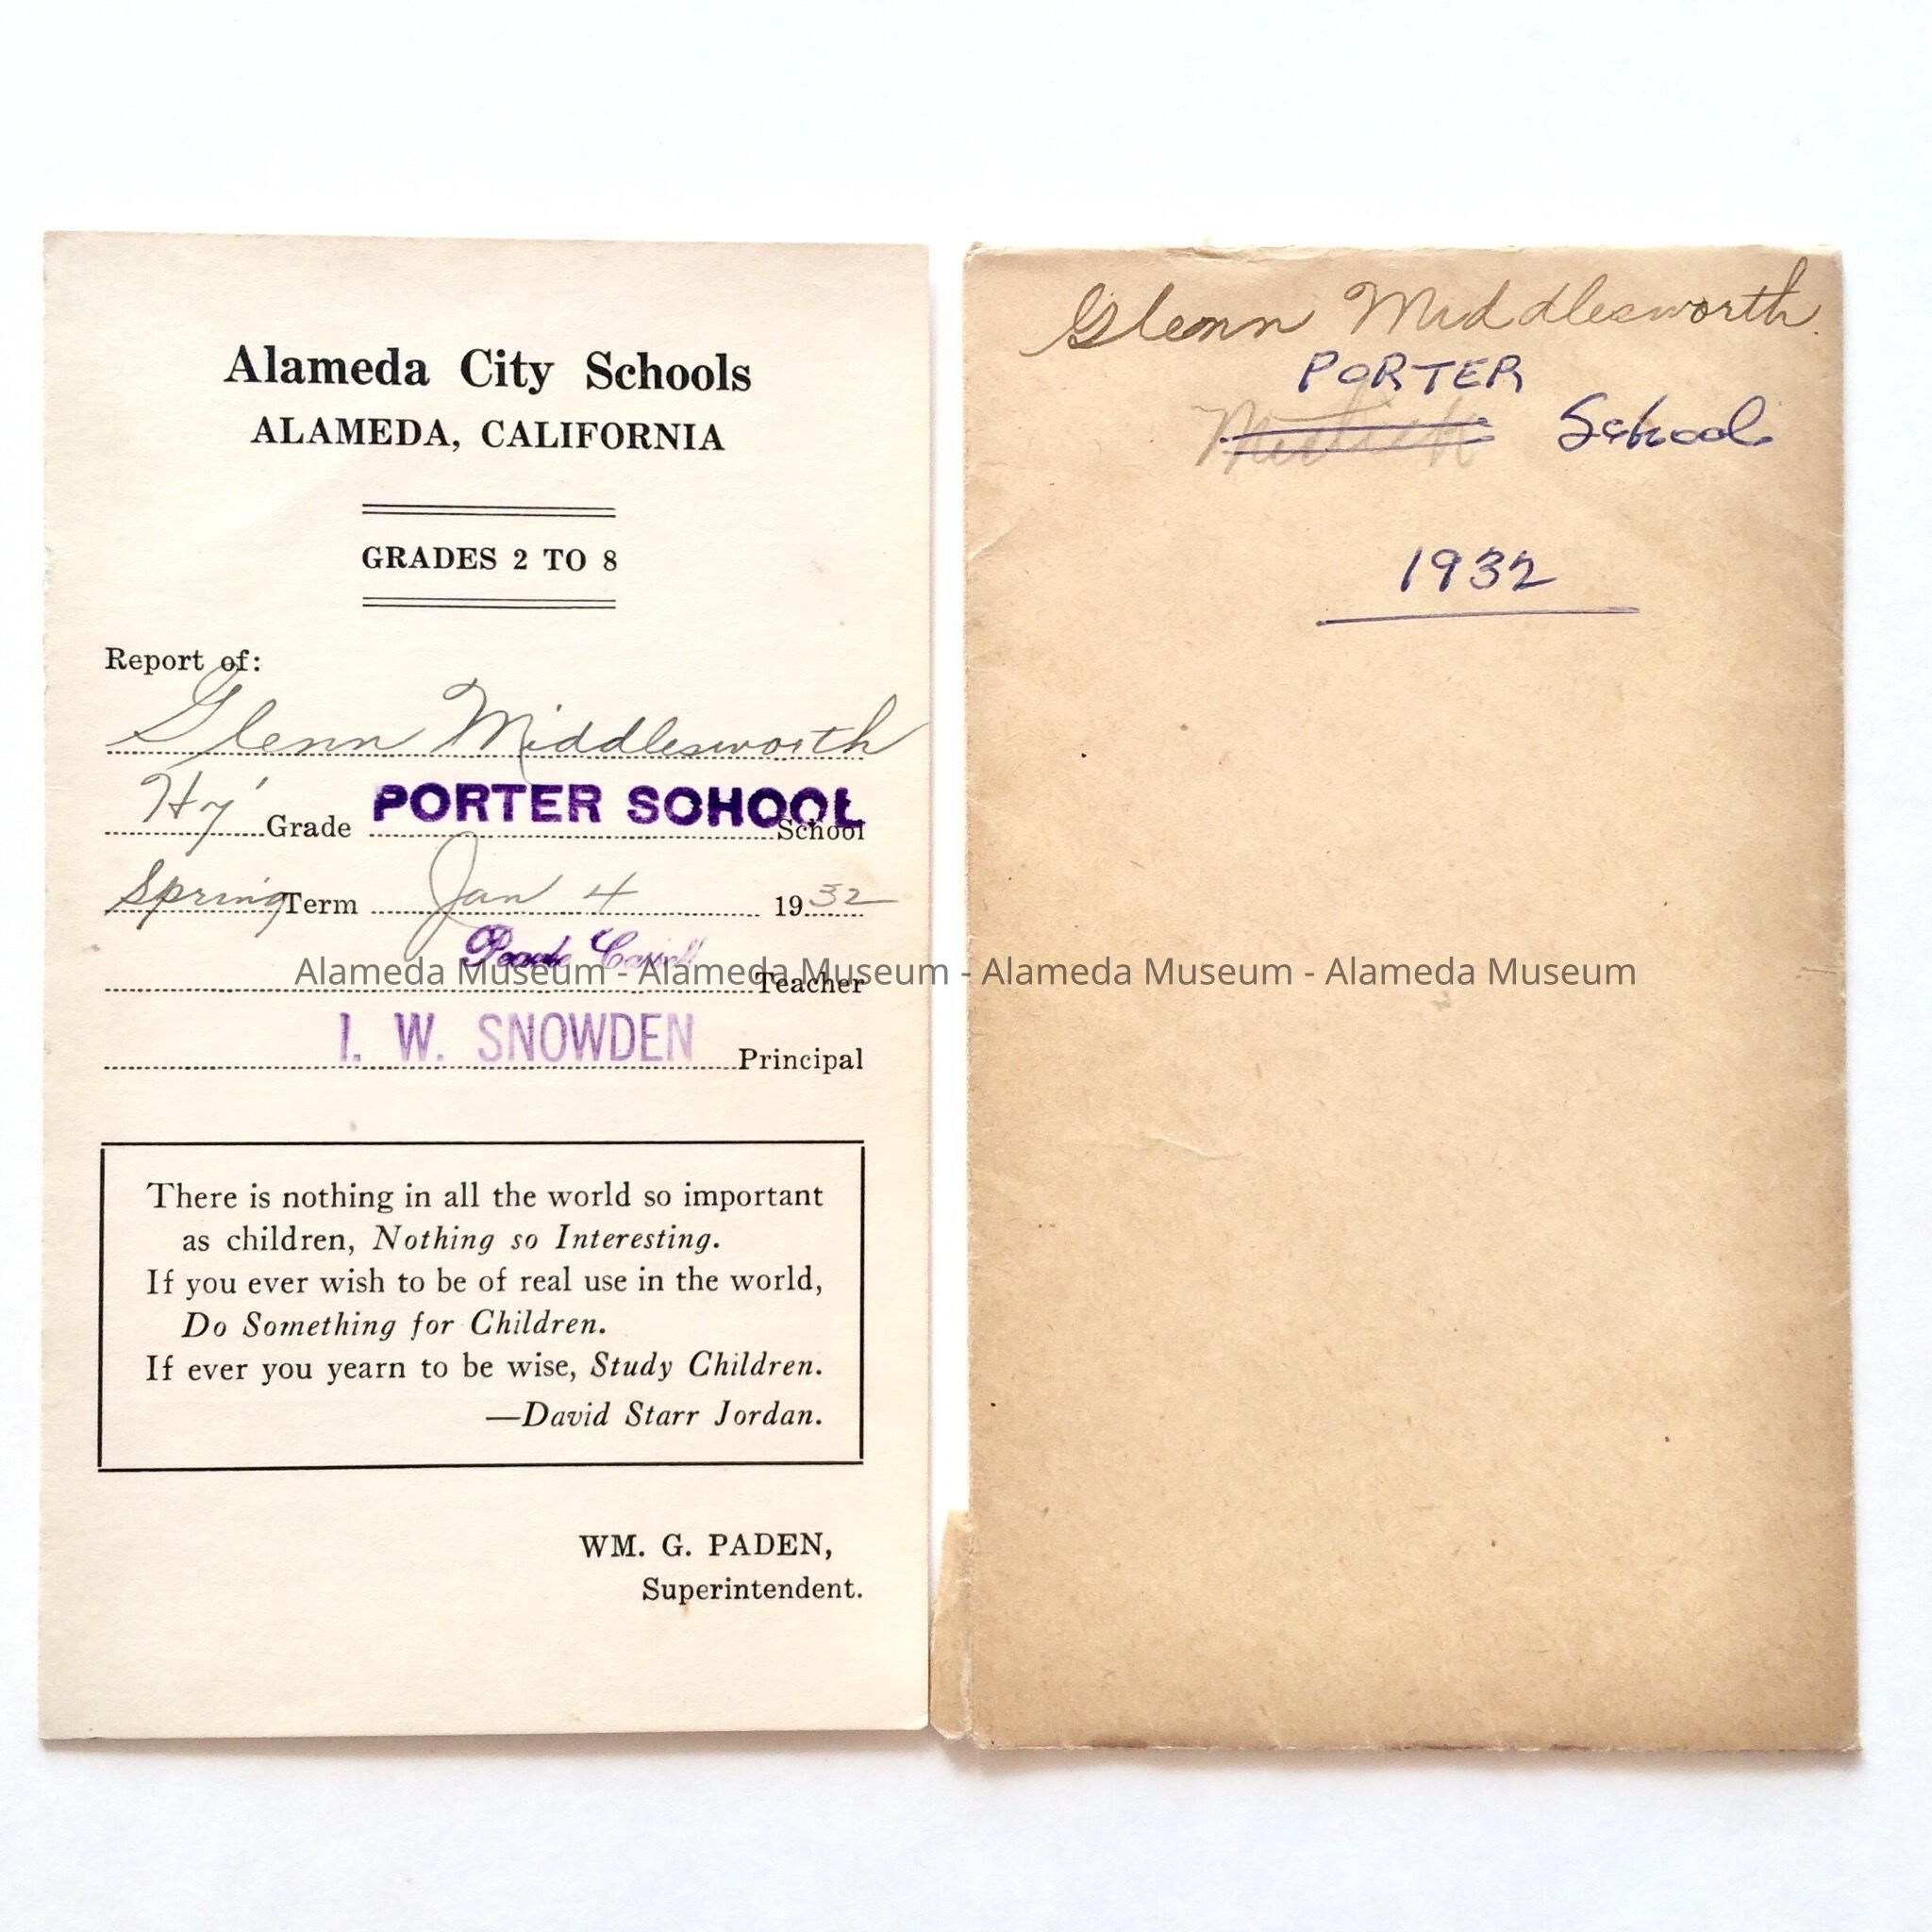 Alameda City Schools
ALAMEDA, CALIFORNIA
GRADES 2 TO 8
Report of:
Glenn Middlesworth
H7' Grade PORTER SCHOOL School
Spring Term Jan 4 1932
Teacher
I. W. SNOWDEN Principal
There is nothing in all the world so important
as children, Nothing so Interesting.
If you ever wish to be of real use in the world,
Do Something for Children.
If ever you yearn to be wise, Study Children.
—David Starr Jordan.
WM. G. PADEN,
Superintendent.
Glenn Middlesworth.
PORTER
School
1932
Alameda Museum - Alameda Museum - Alameda Museum - Alameda Museum